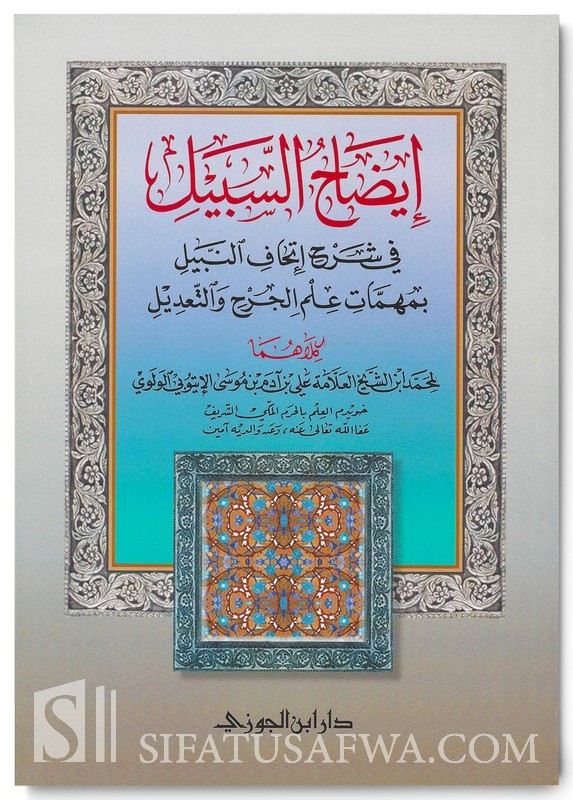 إِيضَاحُ السَّبِيلِ
في شَرْحِ إِتْحَافِ النَّبِيلِ
بِمُهِمَّاتِ عِلْمِ الجَرْحِ وَالتَّعْدِيلِ
كِلَاهُمَا
لمحمد ابن الشَّيْخ العَلّامة علي بن آدم بن موسى الإتيوبي الولوي
خويدم العلم بالحرم المكي الشريف
عفا الله تعالى عنه، وعن والديه آمين
دار ابن الجوزي
S
SIFATUSAFWA.COM